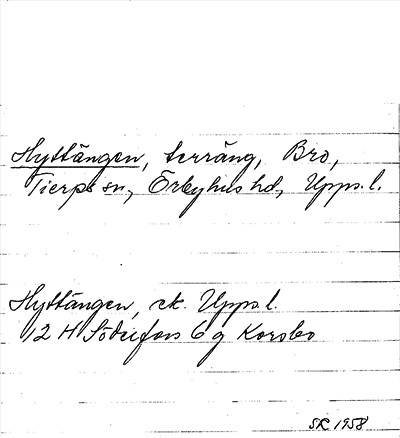 Hyttängen, terräng, Bro,
Tierps sn, Örbyhus hd, Upps.l.
Hyttängen, ek. Upps.l.
12 H Söderfors 6 g Korsbo
SR 1958